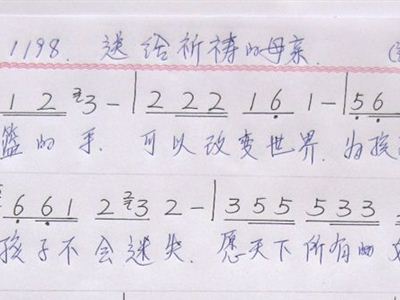 1198. 送给祈祷的母亲.
1 2 3 - | 2 2 2 2 1 6 1 - | 5 6
篮的手. 可以改变世界. 为孩
6 6 1 2 3 2 - | 3 5 5 5 3 3
孩子不会迷失. 愿天下所有的